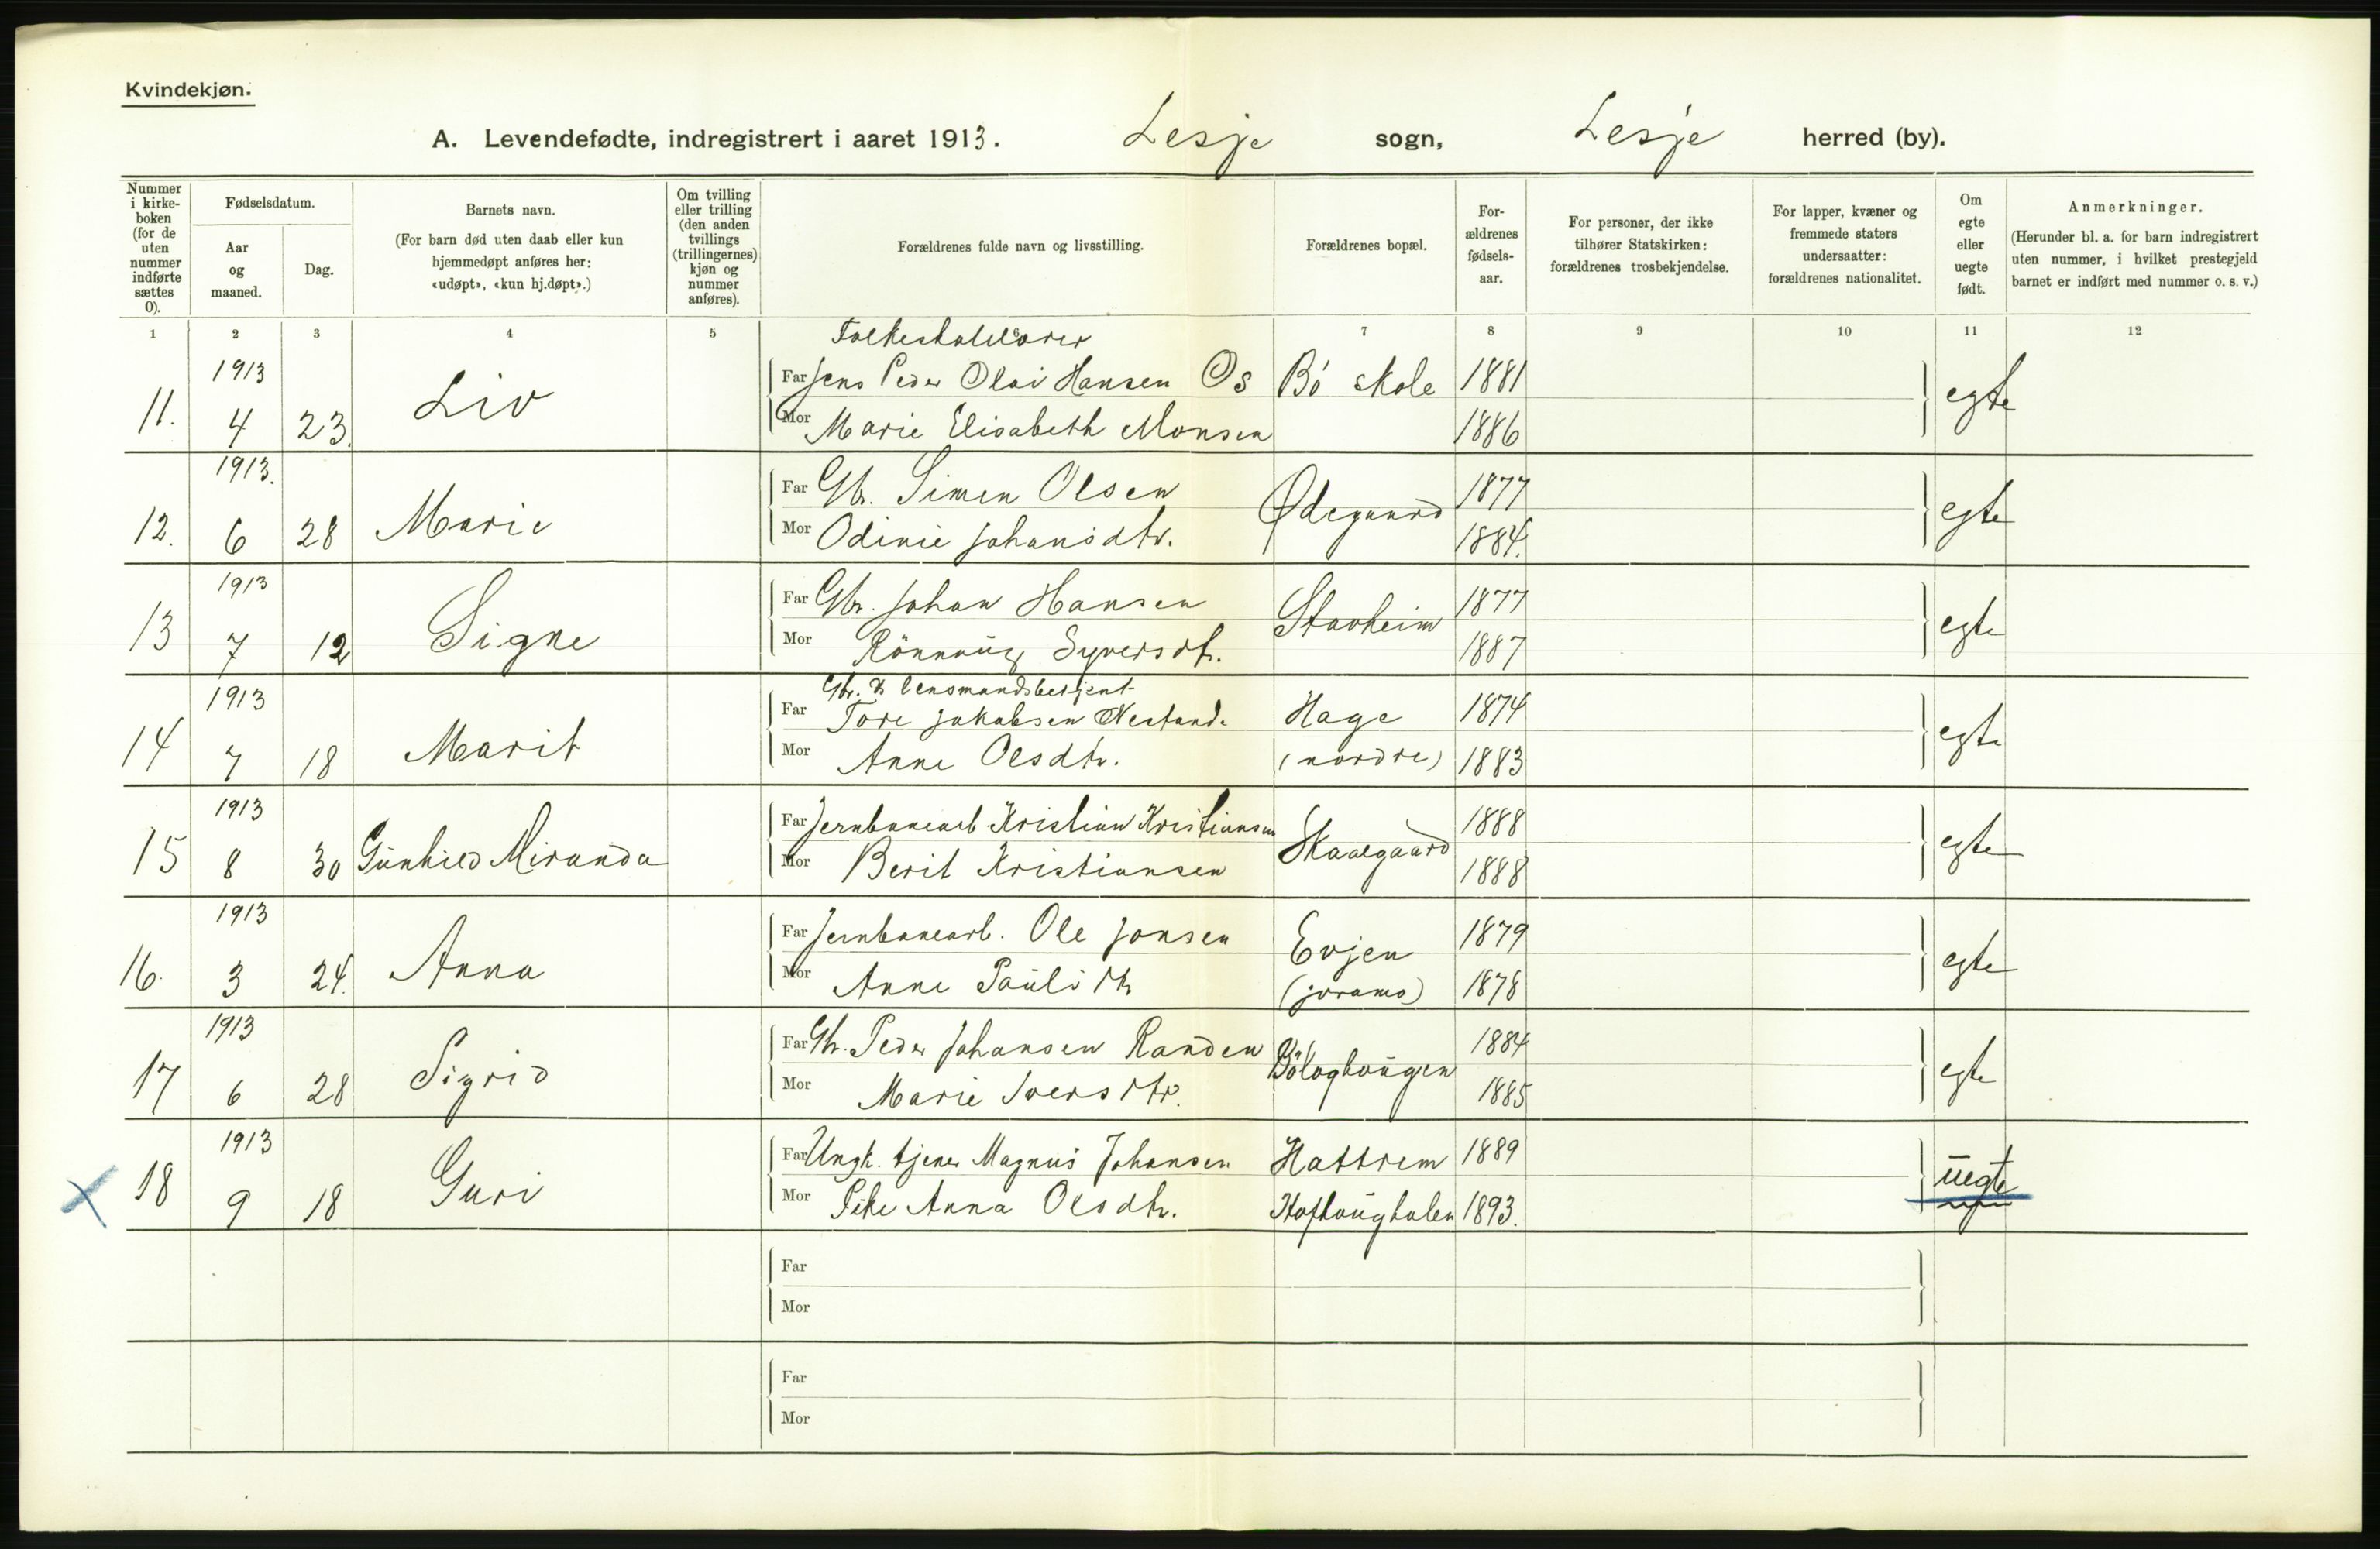 Kvindekjøn.
A. Levendefødte, indregistrert i aaret 1913. Lesje sogn, Lesje herred (by).
Nummer i kirke-boken (for de uten nummer indførte sættes 0).
Fødselsdatum.
Aar og maaned.
Dag.
Barnets navn.
(For barn død uten daab eller kun hjemmedøpt anføres her: «udøpt», «kun hj.døpt».)
Om tvilling eller trilling (den anden tvillings (trillingernes) kjøn og nummer anføres).
Forældrenes fulde navn og livsstilling.
Forældrenes bopæl.
For-ældrenes fødsels-aar.
For personer, der ikke tilhører Statskirken: forældrenes trosbekjendelse.
For lapper, kvæner og fremmede staters undersaatter: forældrenes nationalitet.
Om egte eller uegte født.
Anmerkninger.
(Herunder bl. a. for barn indregistrert uten nummer, i hvilket prestegjeld barnet er indført med nummer o. s. v.)
1 2 3 4 5 6 7 8 9 10 11 12
Folkeskolelærer
1913 Far Jens Peder Olai Hansen Os Bö skole 1881
11. 4 23. Liv Mor Marie Elisabeth Monsen 1886 egte
1913. Far Gbr. Simen Olsen Ødegaard 1877
12. 6 28 Marie Mor Odinie Johansdtr. 1884. egte
1913 Far Gbr. Johan Hansen Stavheim 1877
13 7 12 Signe Mor Rönnaug Syversdt. 1887 egte
Gbr. & lensmandsbetjent
1913 Far Tore Jakobsen Hage 1874
14 7 18 Marit Mor Anne Olsdtr. (nordre) 1883 egte
1913 Far Jernbanearb Kristian Kristiansen Skaalgaard 1888
15 8 30 Gunhild Miranda Mor Berit Kristiansen 1888 egte
1913 Far Jernbanearb. Ole Jonsen Evjen 1879
16. 3 24. Anna Mor Anne Paulsdtr (jorams) 1878 egte
1913 Far Gbr. Peder Johansen Randen 1884
17 6 28 Sigrid Mor Marie Iversdtr. 1885 egte
1913 Far Ungk. tjener Magnus Johansen Hattrem 1889
18 9 18 Guri Mor Pike Anna Olsdtr. 1893. uegte
Far
Mor
Far
Mor